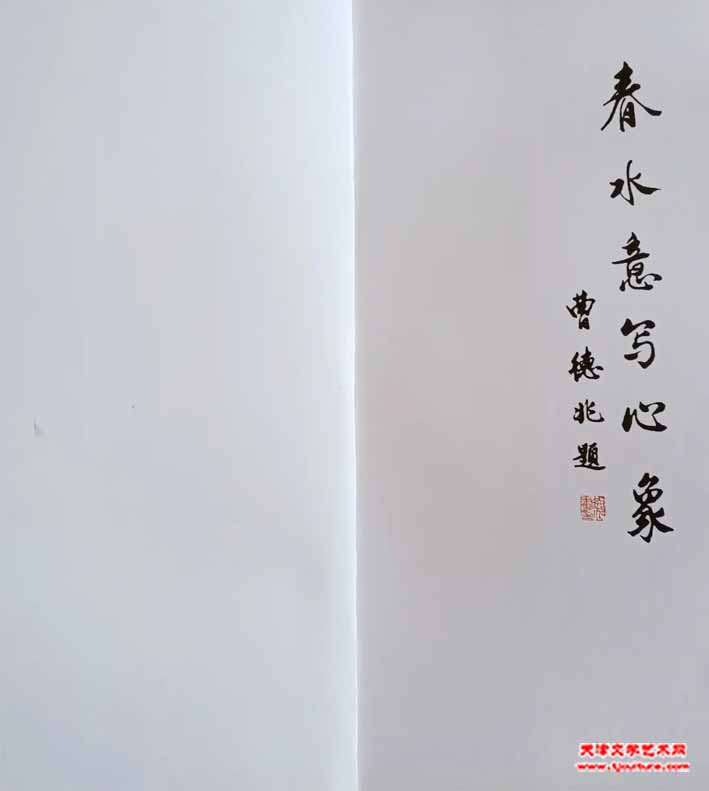 春水意写心象
曹德兆题
天津文学艺术网